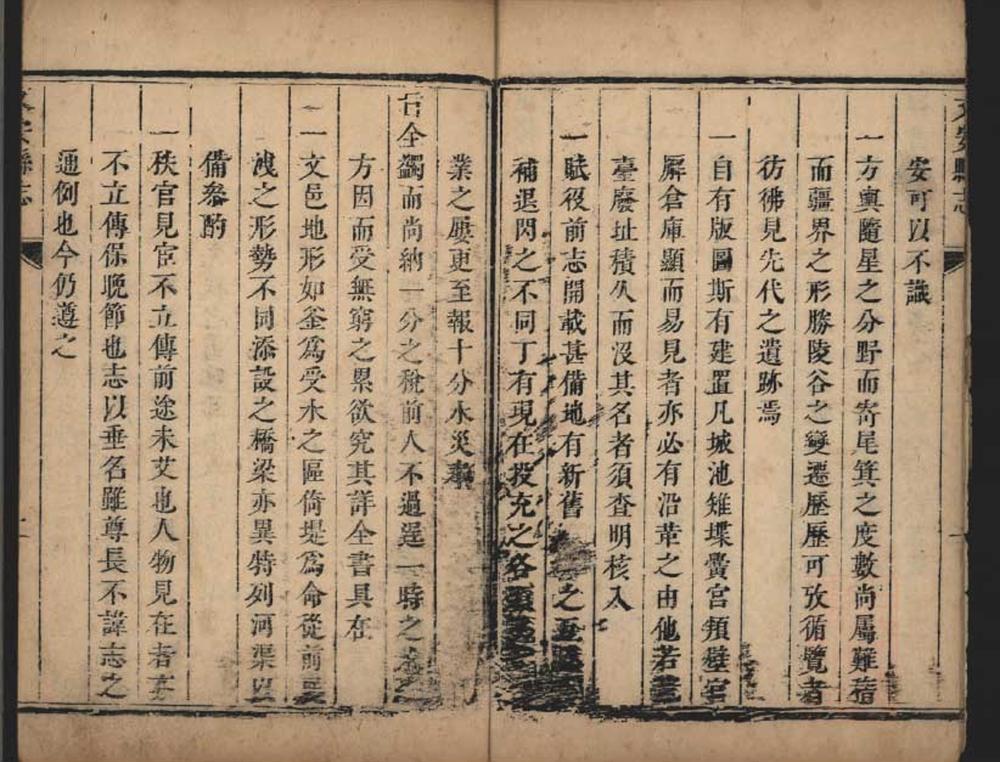 文安縣志
安可以不識
一方輿隨星之分野而寄尾箕之度數尚屬難稽
而疆界之形勝陵谷之變遷歷歷可攷循覽者
彷彿見先代之遺跡焉
一自有版圖斯有建置凡城池雉堞黌宮頖壁官
廨倉庫顯而易見者亦必有沿革之由他若
臺廢址積久而沒其名者須查明核入
一賦役前志開載甚備地有新舊之
補退閃之不同丁有現在投充之各
業之屢更至報十分水災奉
旨全蠲而尚納一分之稅前人不過逞一時之
方因而受無窮之累欲究其詳全書具在
一文邑地形如釜為受水之區倚堤為命從前
洩之形勢不同添設之橋梁亦異特列河渠以
備參酌
一秩官見宦不立傳前途未艾也人物見在者亦
不立傳保晚節也志以垂名雖尊長不諱志之
通例也今仍遵之
文安縣志